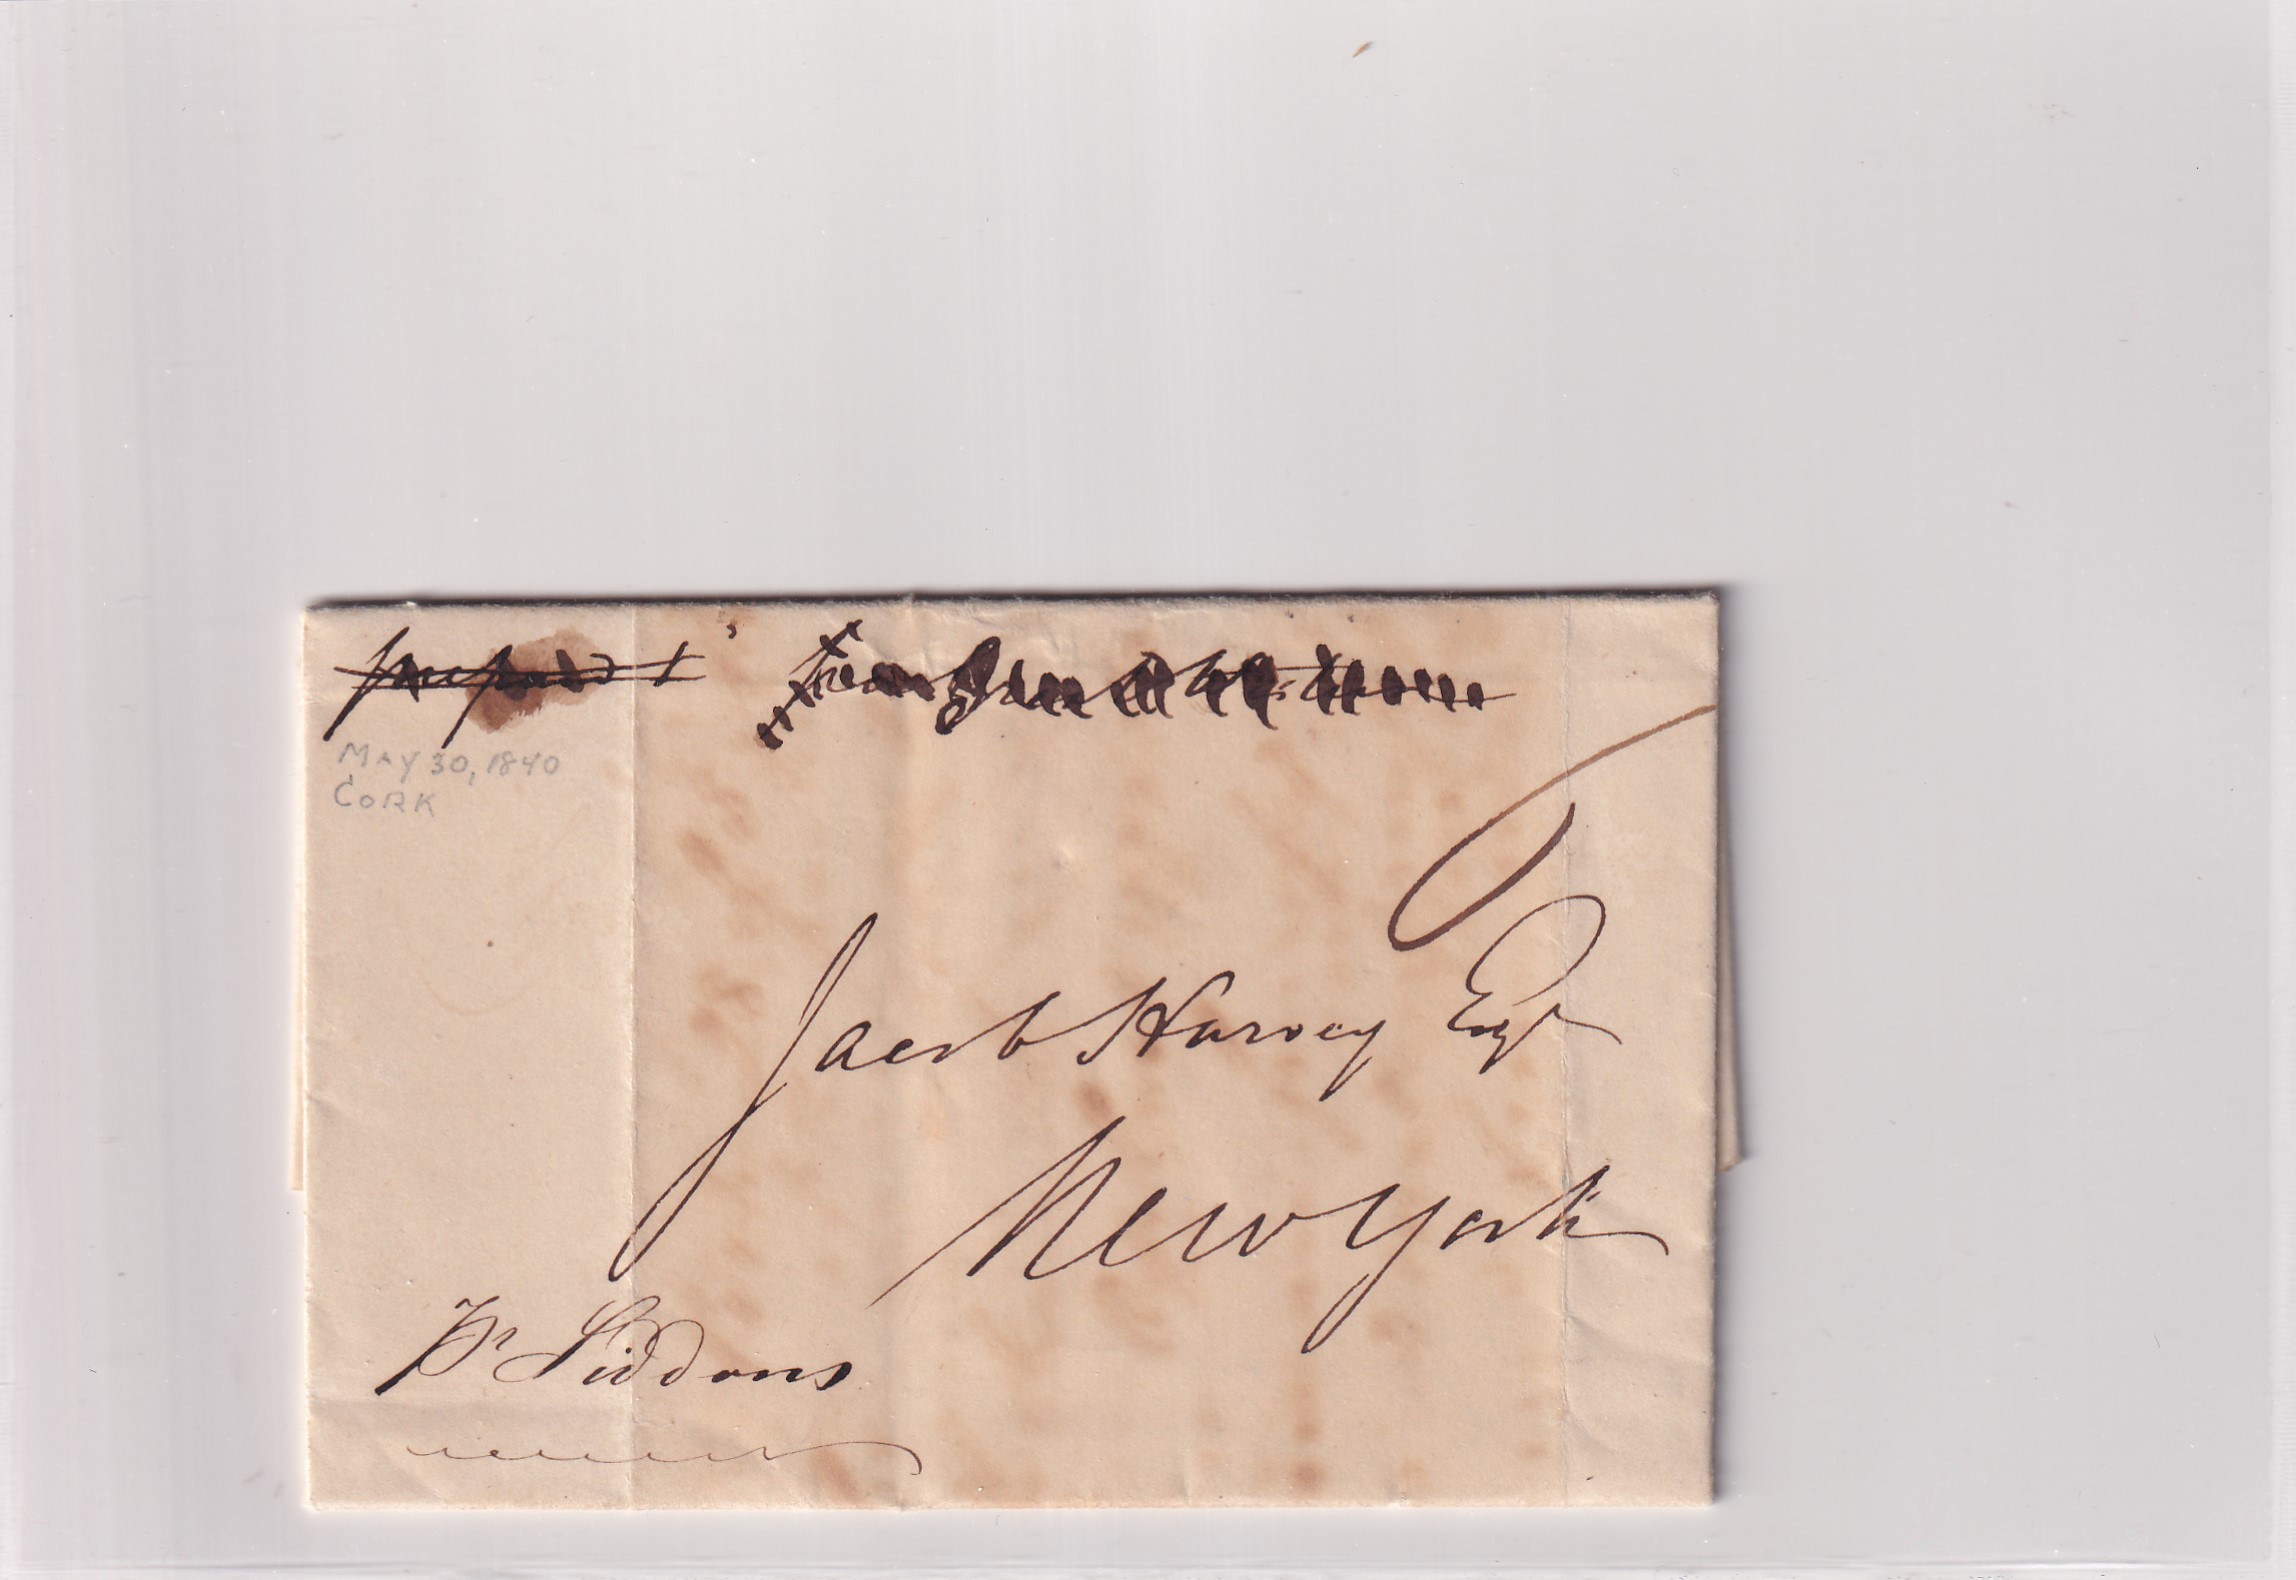 prepaid
MAY 30, 1840
CORK
Jacob Harvey Esqr
New York
Pr Siddons